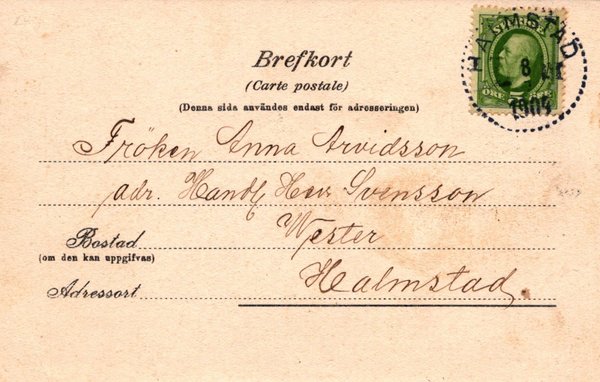 Brefkort
(Carte postale)
(Denna sida användes endast för adresseringen)
SVERIGE
ÖRE
HALMSTAD
8
1904
Fröken Anna Arvidsson
adr. Handl Herr Svensson
Bostad
Wester
(om den kan uppgifvas)
Adressort
Halmstad.